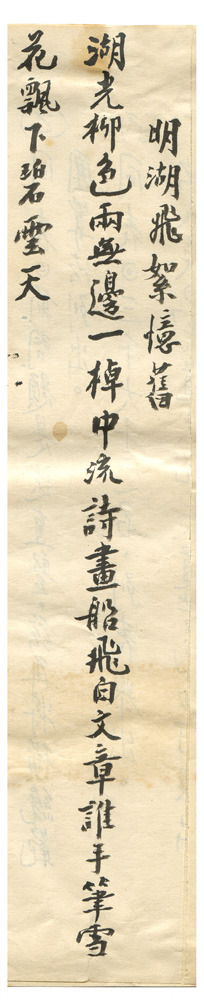 明湖飛絮憶舊
湖光柳色兩無邊一棹中流詩畫船飛白文章誰手筆雪
花飄下碧雲天